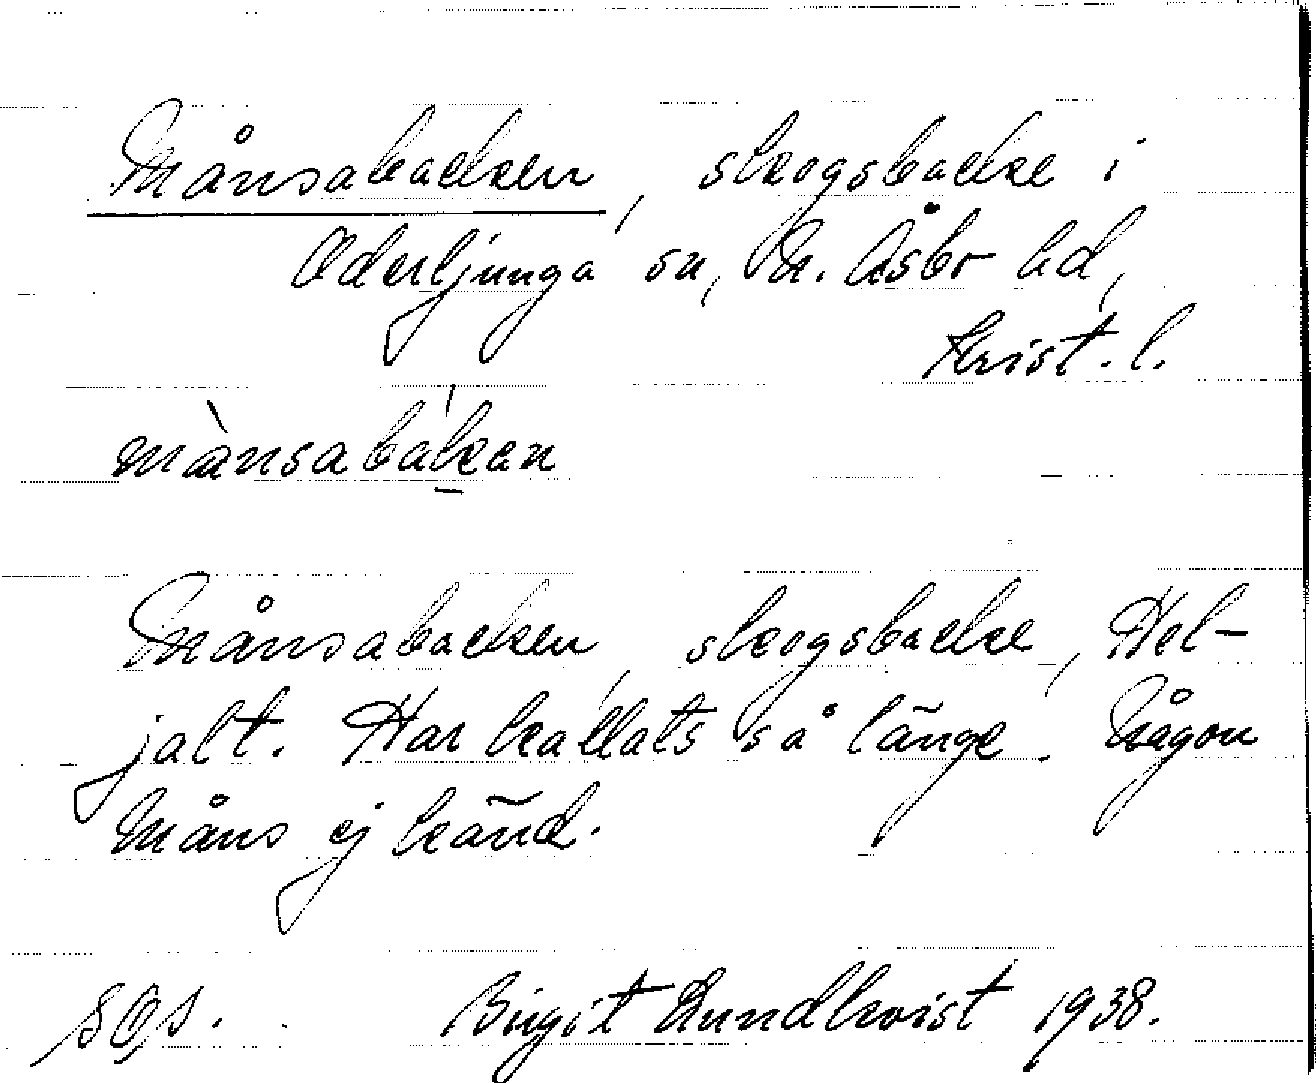 Månsabacken, skogsbacke i
Oderljunga sn, N. Åsbo hd,
Krist. l.
mànsabák̠an
Månsabacken, skogsbacke, Hel-
jalt. Har kallats så länge. Någon
Måns ej känd.
SOA. Birgit Lundkvist 1938.